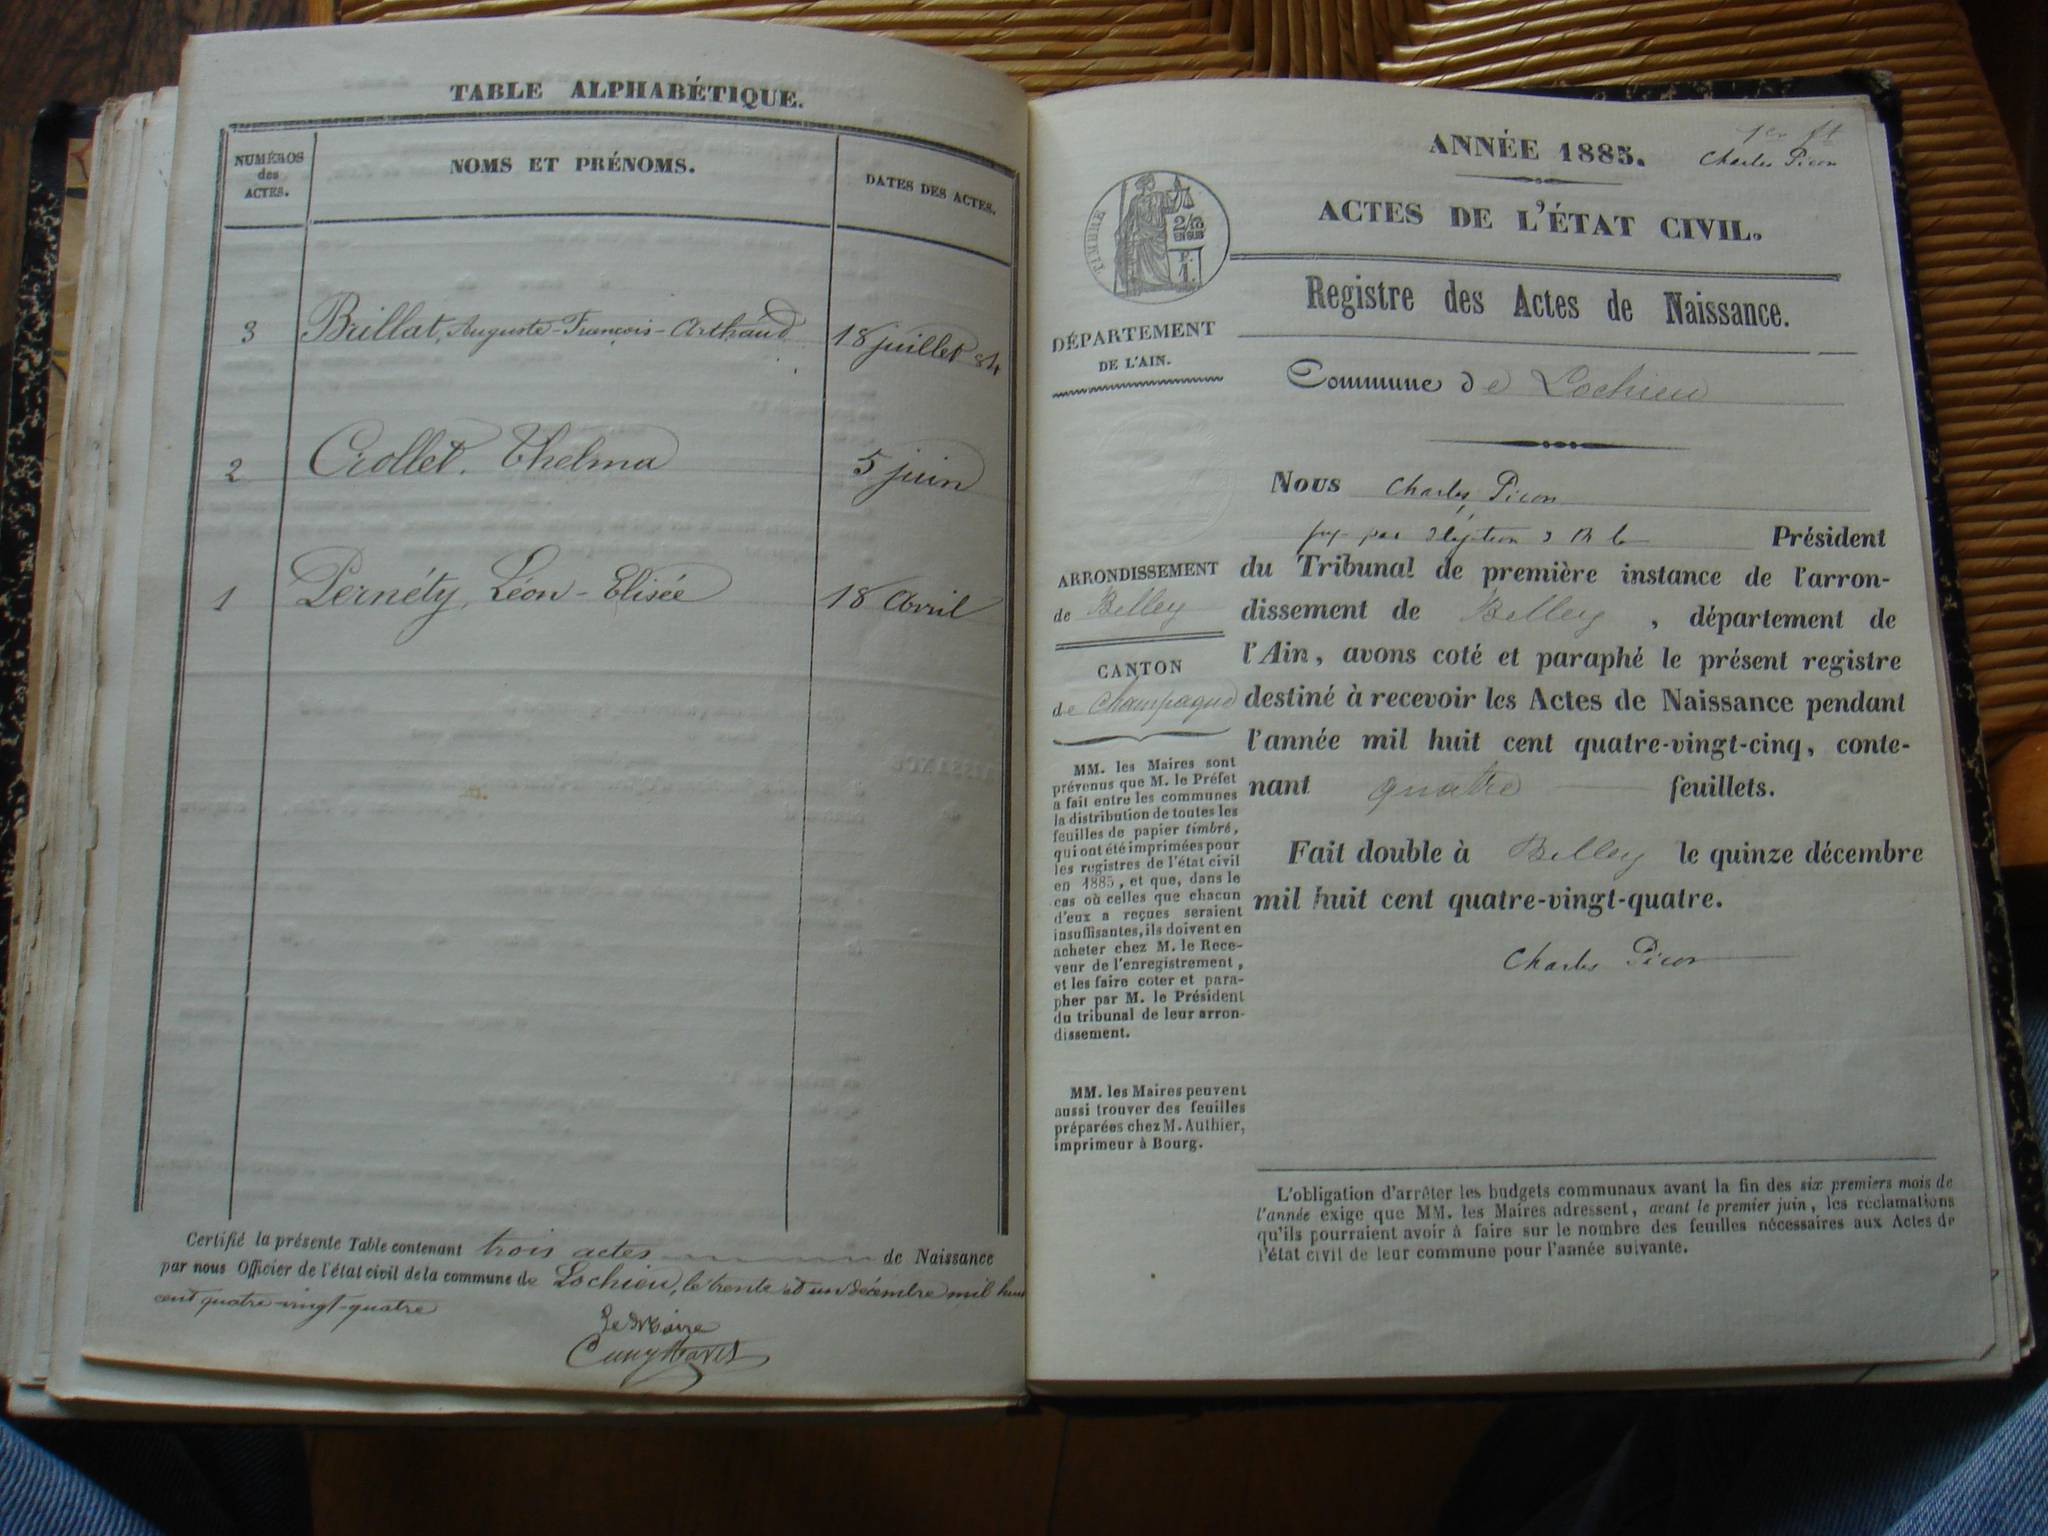 TABLE ALPHABÉTIQUE.
NUMÉROS
des
ACTES.
NOMS ET PRÉNOMS.
DATES DES ACTES.
3 Brillat, Auguste-François-Arthaud 18 juillet 84
2 Crollet. Thelma 5 juin
1 Pernéty, Léon-Elisée 18 Avril
Certifié la présente Table contenant trois actes de Naissance
par nous Officier de l'état civil de la commune de Lochieu, le trente et un décembre mil huit
cent quatre-vingt-quatre
Le Maire
1er ft
Charles Picon
ANNÉE 1885.
ACTES DE L'ÉTAT CIVIL.
TIMBRE
2/10
EN SUS
F.
1.
Registre des Actes de Naissance.
DÉPARTEMENT
DE L'AIN.
Commune de Lochieu
Nous Charles Picon
Président
du Tribunal de première instance de l'arron-
dissement de Belley, département de
l'Ain, avons coté et paraphé le présent registre
destiné à recevoir les Actes de Naissance pendant
l'année mil huit cent quatre-vingt-cinq, conte-
nant quatre feuillets.
Fait double à Belley le quinze décembre
mil huit cent quatre-vingt-quatre.
Charles Picon
ARRONDISSEMENT
de Belley
CANTON
de Champagne
MM. les Maires sont
prévenus que M. le Préfet
a fait entre les communes
la distribution de toutes les
feuilles de papier timbré,
qui ont été imprimées pour
les registres de l'état civil
en 1885, et que, dans le
cas où celles que chacun
d'eux a reçues seraient
insuffisantes, ils doivent en
acheter chez M. le Rece-
veur de l'enregistrement,
et les faire coter et para-
pher par M. le Président
du tribunal de leur arron-
dissement.
MM. les Maires peuvent
aussi trouver des feuilles
préparées chez M. Authier,
imprimeur à Bourg.
L'obligation d'arrêter les budgets communaux avant la fin des six premiers mois de
l'année exige que MM. les Maires adressent, avant le premier juin, les réclamations
qu'ils pourraient avoir à faire sur le nombre des feuilles nécessaires aux Actes de
l'état civil de leur commune pour l'année suivante.